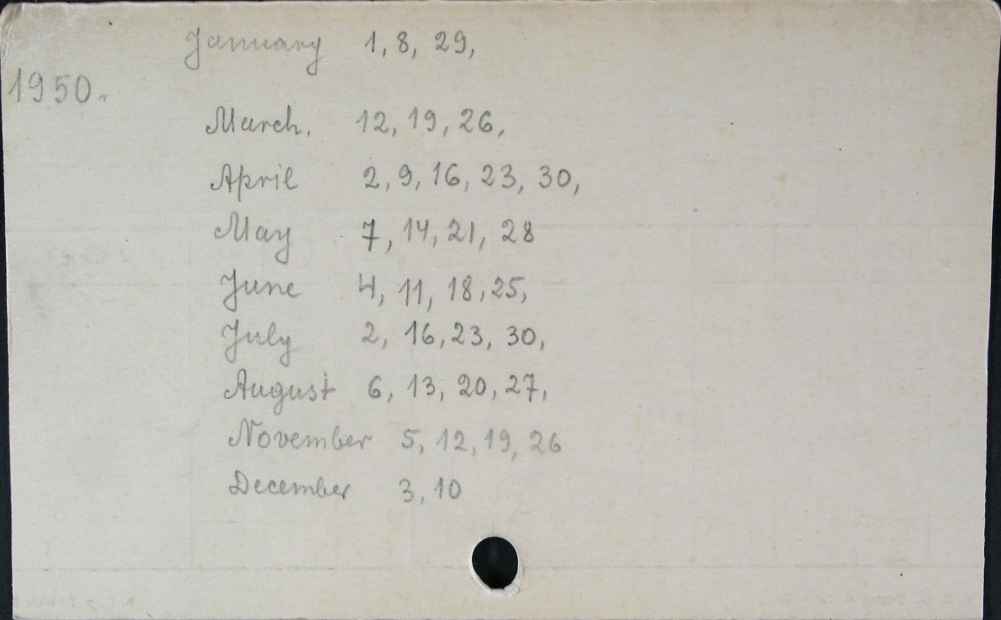 January 1, 8, 29,
1950.
March. 12, 19, 26,
April 2, 9, 16, 23, 30,
May 7, 14, 21, 28
June 4, 11, 18, 25,
July 2, 16, 23, 30,
August 6, 13, 20, 27,
November 5, 12, 19, 26
December 3, 10